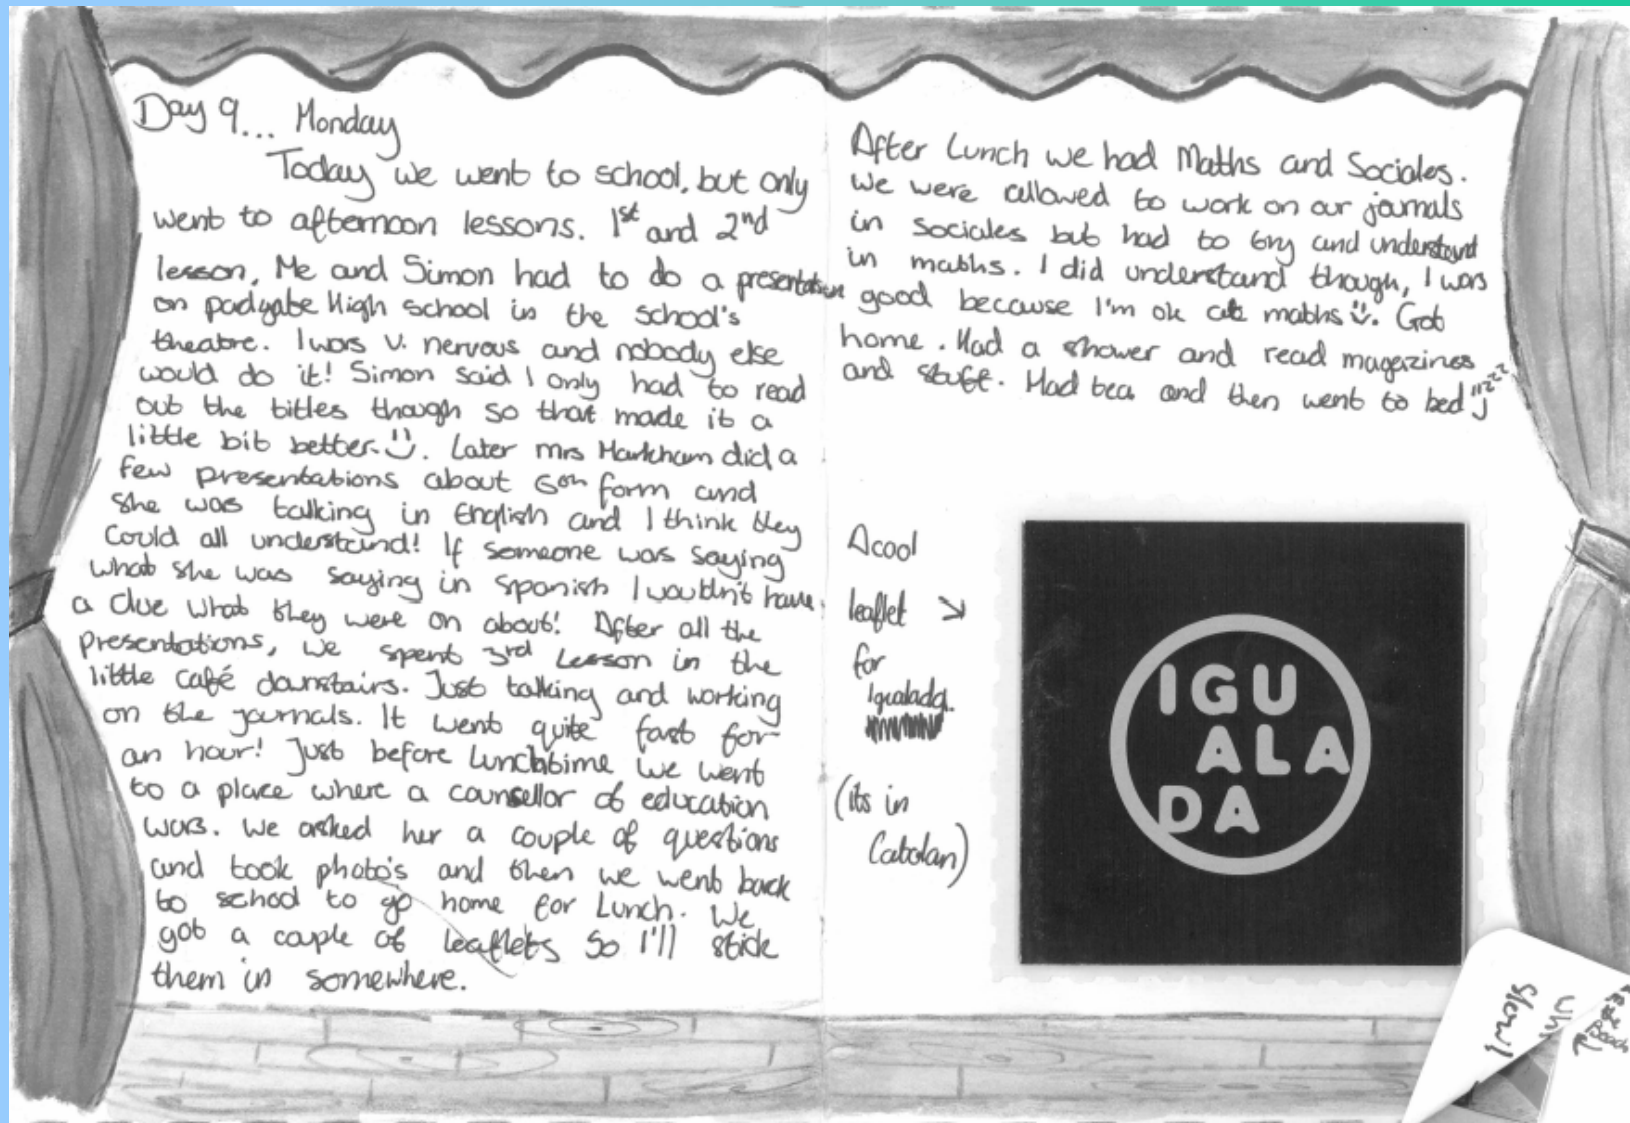 Day 9... Monday
Today we went to school, but only
went to afternoon lessons. 1st and 2nd
lesson, Me and Simon had to do a presentation
on padgate High school in the school's
theatre. I was v. nervous and nobody else
would do it! Simon said I only had to read
out the titles though so that made it a
little bit better. Later mrs Markham did a
few presentations about 6th form and
she was talking in English and I think they
could all understand! If someone was saying
what she was saying in spanish I wouldn't have
a clue what they were on about! After all the
presentations, we spent 3rd Lesson in the
little café downstairs. Just talking and working
on the journals. It went quite fast for
an hour! Just before Lunchtime we went
to a place where a counsellor of education
was. We asked her a couple of questions
and took photo's and then we went back
to school to go home for Lunch. We
got a couple of leaflets so I'll stick
them in somewhere.
After Lunch we had Maths and Sociales.
We were allowed to work on our journals
in sociales but had to try and understand
in maths. I did understand though, I was
good because I'm ok at maths. Got
home. Had a shower and read magazines
and stuff. Had tea and then went to bed zzz
A cool
leaflet
for
Igualada.
(its in
Catalan)
IGU
ALA
DA
the
Beach